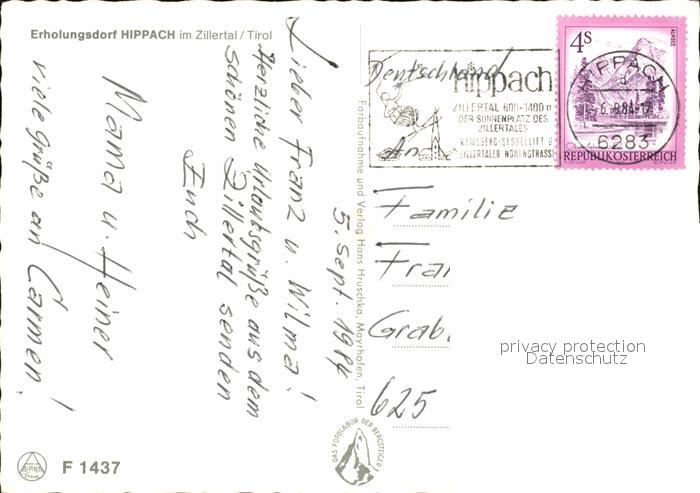 Erholungsdorf HIPPACH im Zillertal / Tirol
5. Sept. 1984
Lieber Franz u. Wilma!
Herzliche Urlaubsgrüße aus dem
schönen Zillertal senden
Euch
Mama u. Heiner
viele Grüße an Carmen!
F 1437
Farbaufnahme und Verlag Hans Hruschka, Mayrhofen, Tirol
DAS FOTOLABOR DER BERGSTEIGER
Deutschland
An
hippach
ZILLERTAL 600-1400 m
DER SONNENPLATZ DES
ZILLERTALES
RAMSBERG-SESSELLIFT
ZILLERTALER HÖHENSTRASSE
4S
ALMSEE
HIPPACH
6283
REPUBLIK ÖSTERREICH
Familie
Fra
Grab
625
privacy protection
Datenschutz